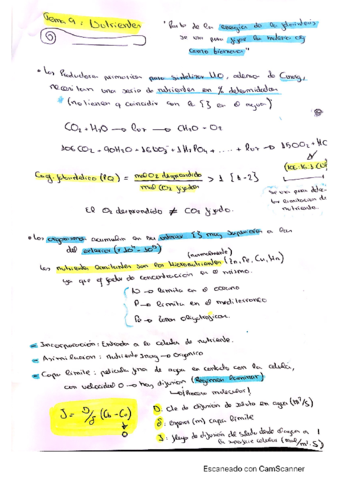 Tema 9: Nutrientes
"Parte de la energía de la fotosíntesis
se usa para fijar la materia org
como biomasa"
• Los Productores primarios para sintetizar MO, además de Cinorg,
necesitan una serie de nutrientes en % determinadas
(no tienen q coincidir con la [ ] en el agua)
CO₂ + H₂O → Fot → CH₂O + O₂
106CO₂ + 90H₂O + 16NO₃ + 1H₃PO₄ + .... + Fot → 150O₂ + MO
(106:16:1 C:N:P)
Coef. fotosintético (PQ) = mol O₂ desprendido / mol CO₂ fijados > 1 [1-2]
Se usa para deter
la limitación de
nutrientes.
El O₂ desprendido ≠ CO₂ fijado.
• Los organismos acumulan en su interior [ ] muy superiores a las
del exterior
(normalmente)
Los nutrientes limitantes son los Micronutrientes (Zn, Fe, Cu, Mn)
ya que el factor de concentración es el mismo.
N → limita en el océano
P → limita en el mediterráneo
Fe → zonas oligotróficas.
- Incorporación: Entrada a la célula de nutriente.
- Asimilación: nutriente Inorg → orgánico
- Capa límite: película fina de agua en contacto con la célula,
con velocidad 0 → hay difusión (Régimen laminar)
↳ (Proceso molecular)
J = D/δ (C₁ - C₀)
0
D: Cte de difusión de soluto en agua (m²/s)
δ: Espesor (m) capa límite
J: flujo de difusión del soluto desde el agua a
la superficie celular (mol/m².s)
1
Escaneado con CamScanner